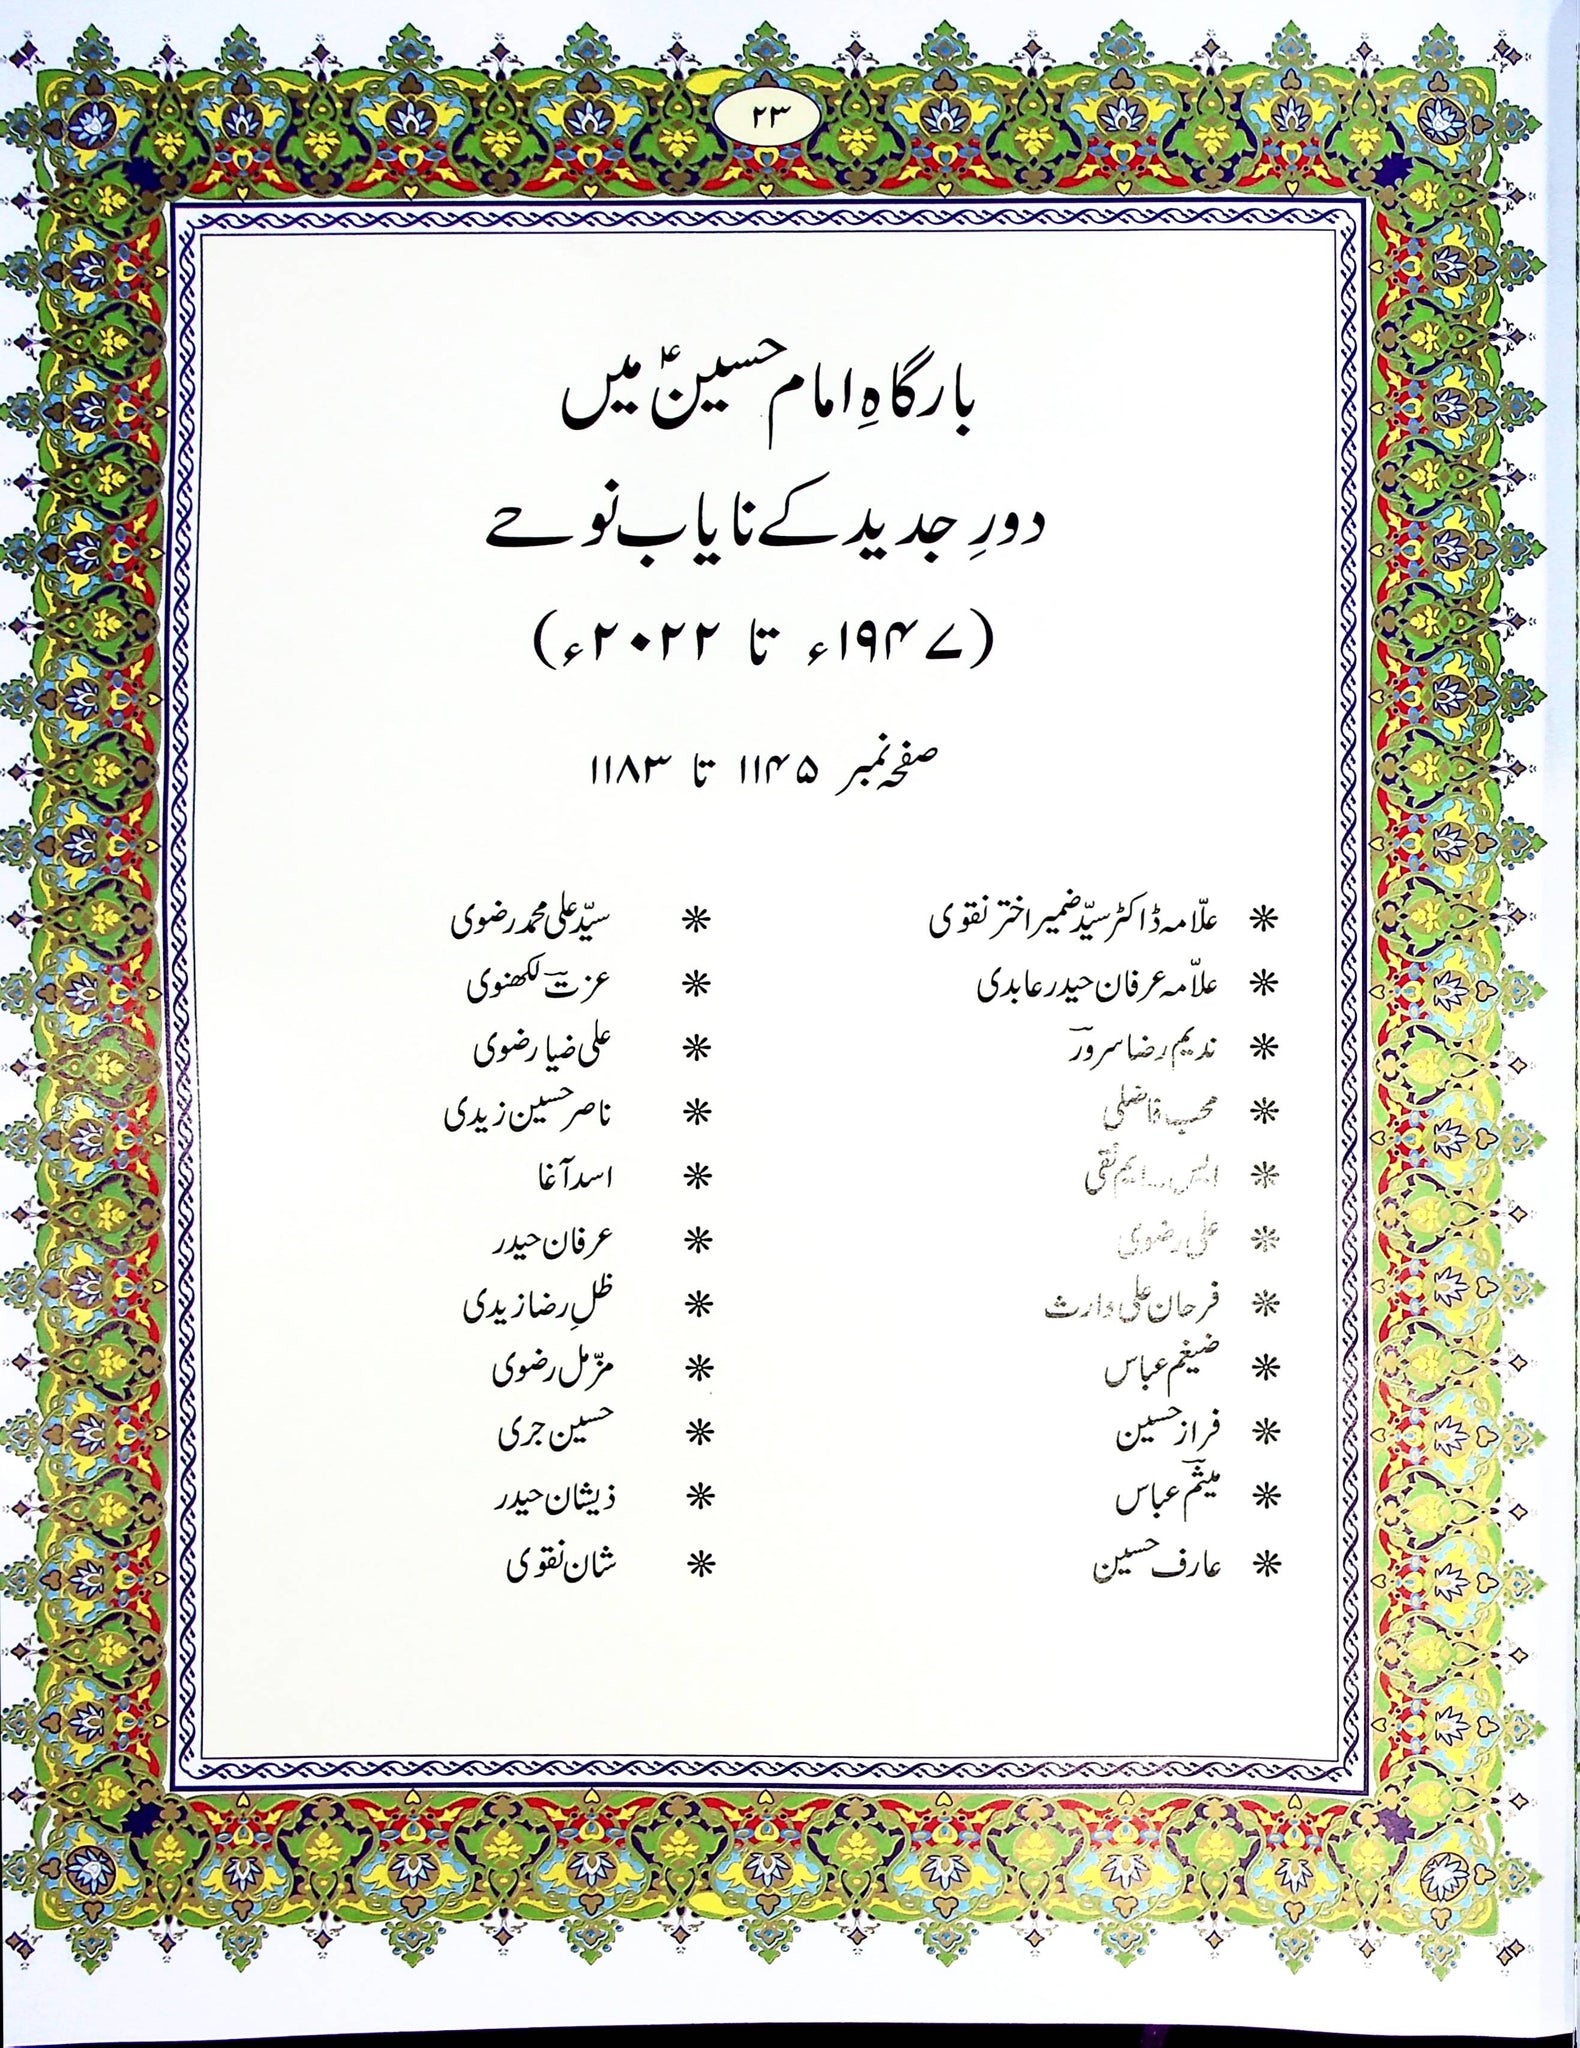 ۲۳
بارگاہِ امام حسینؑ میں
دورِ جدید کے نایاب نوحے
(۱۹۴۷ء تا ۲۰۲۲ء)
صفحہ نمبر ۱۱۴۵ تا ۱۱۸۳
❋ علّامہ ڈاکٹر سیّد ضمیر اختر نقوی ❋ سیّد علی محمد رضوی
❋ علّامہ عرفان حیدر عابدی ❋ عزتؔ لکھنوی
❋ ندیم رضا سرورؔ ❋ علی ضیا رضوی
❋ محب فاضلی ❋ ناصر حسین زیدی
❋ ایس۔ایم نقی ❋ اسد آغا
❋ علی رضوی ❋ عرفان حیدر
❋ فرحان علی وارث ❋ ظلِ رضا زیدی
❋ ضیغم عباس ❋ مزّمل رضوی
❋ فراز حسین ❋ حسین جری
❋ میثمؔ عباس ❋ ذیشان حیدر
❋ عارف حسین ❋ شان نقوی